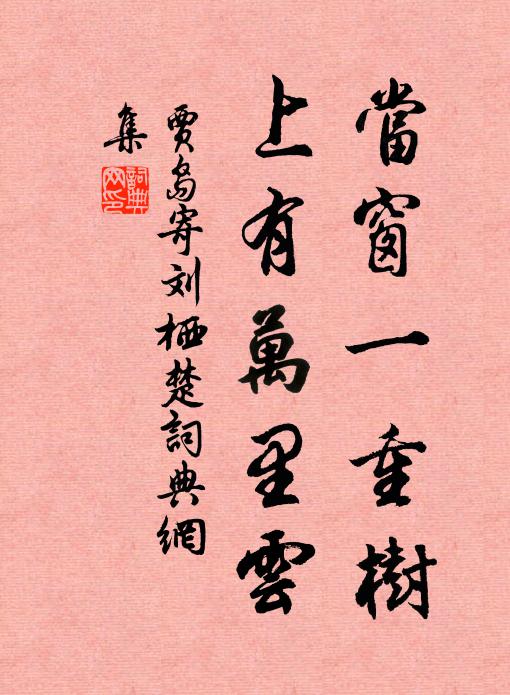 當窗一重樹
上有萬里雲
賈島寄刘栖楚詞典網
集
詞典网印